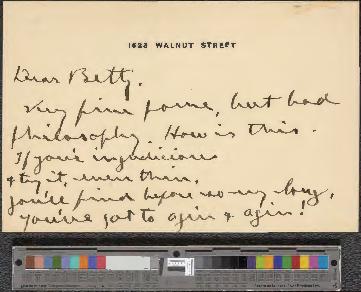 1623 WALNUT STREET
Dear Betty,
Very fine pome, but bad
philosophy. How is this.
If you're injudicious
& try it, even thin,
You'll find before so very long,
You've got to agin & agin!